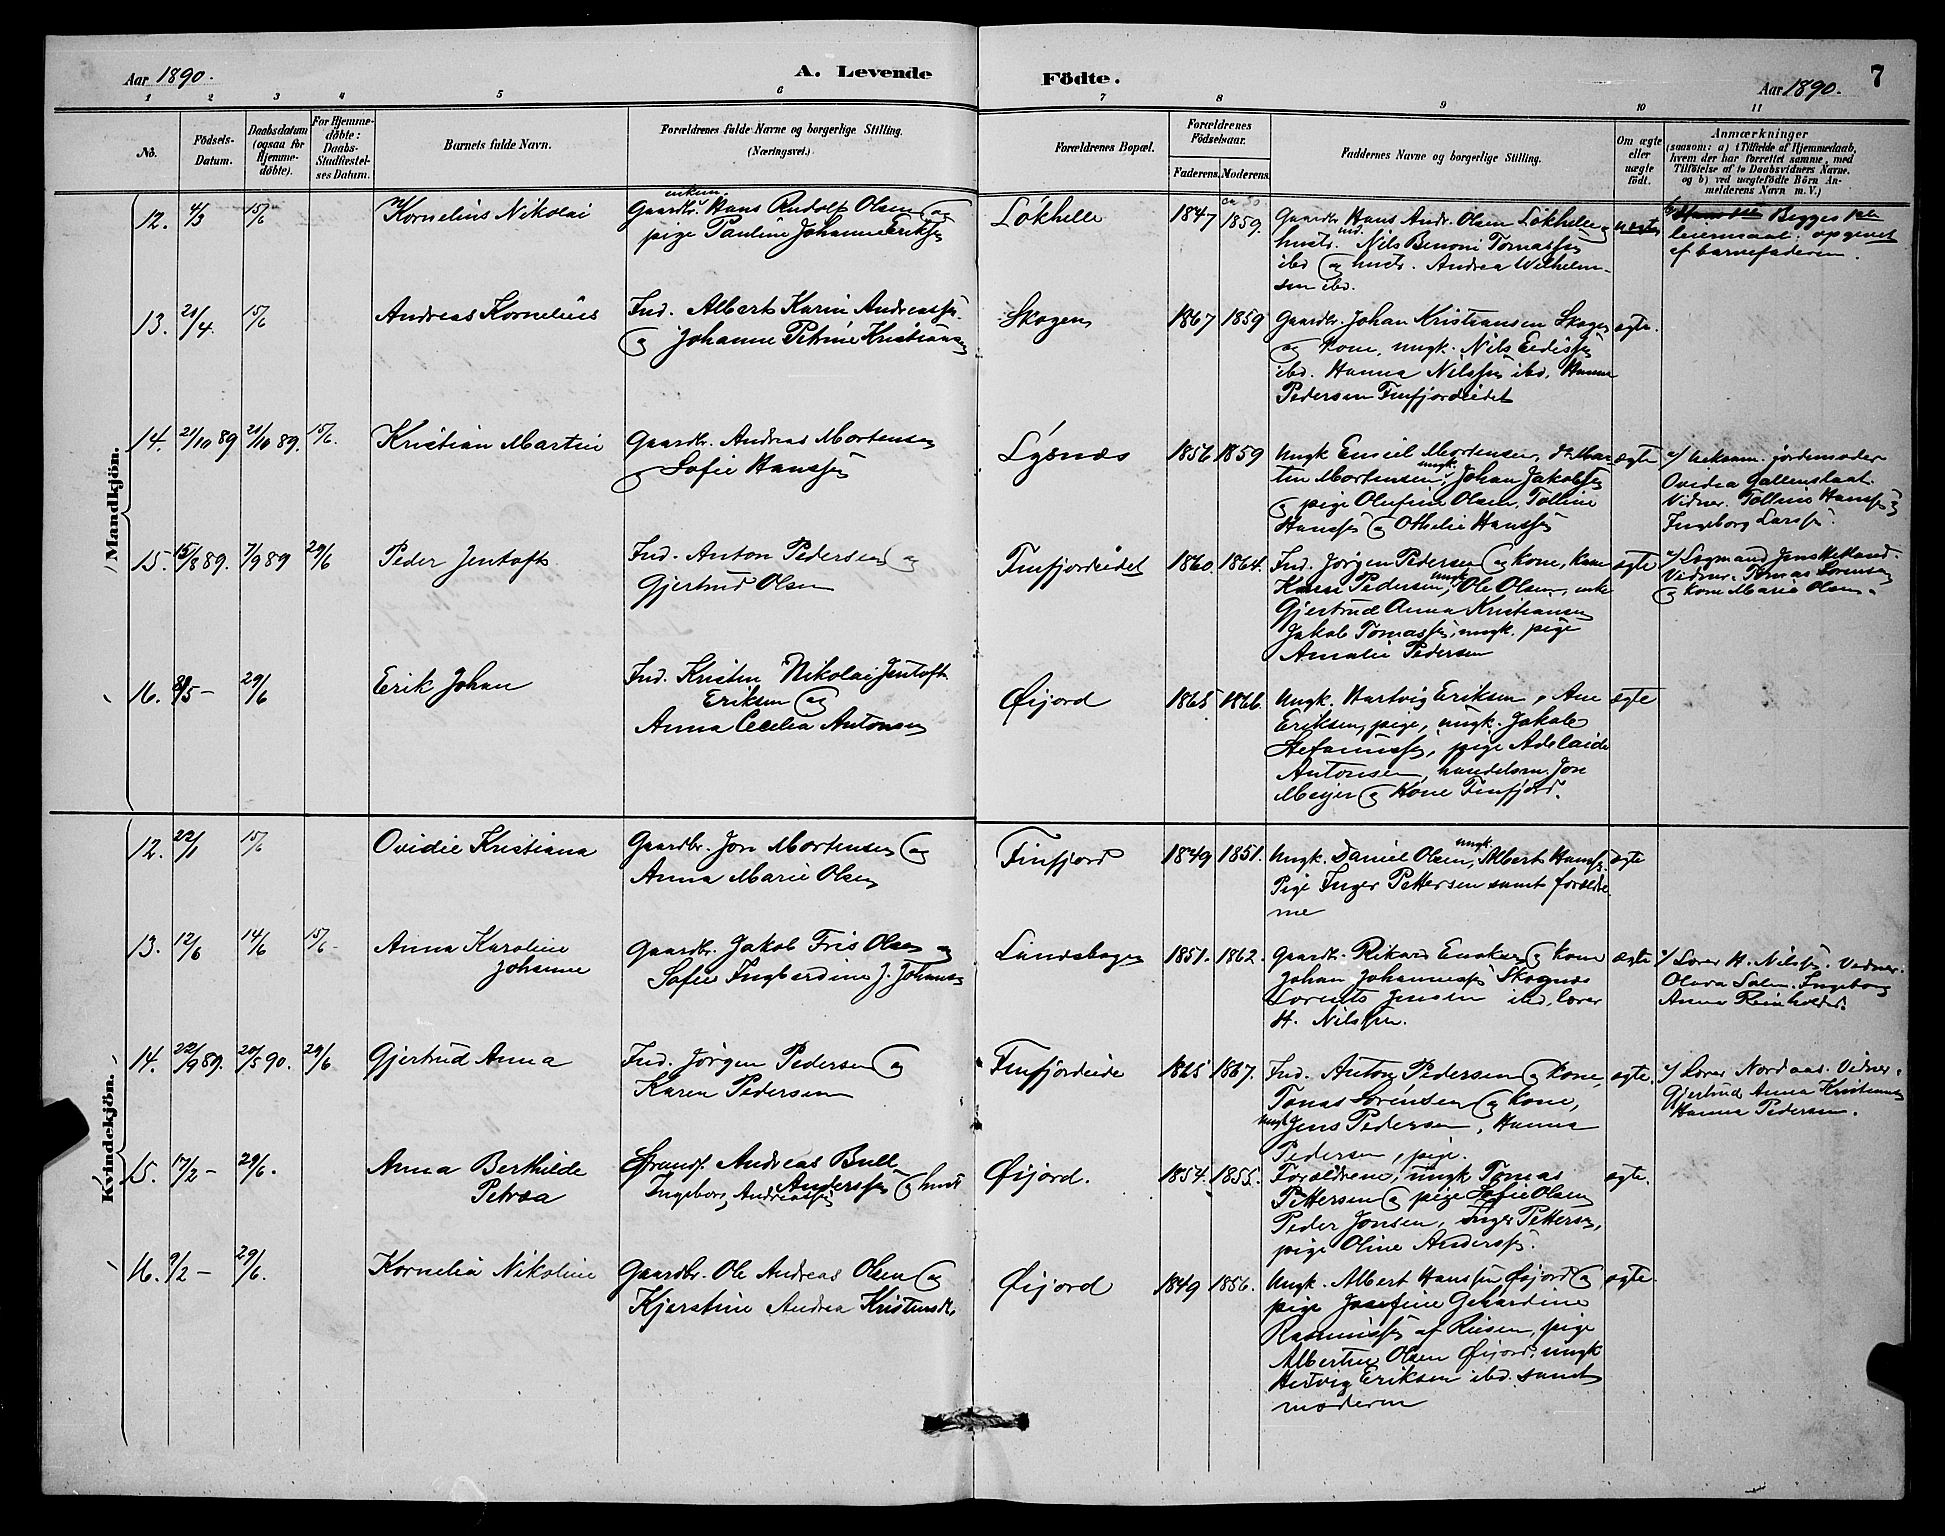 Aar 1890.
A. Levende
Födte.
Aar 1890.
7
1 2 3 4 5 6 7 8 9 10 11
No.
Födsels-
Datum.
Daabsdatum
(ogsaa for
Hjemme-
döbte).
For Hjemme-
döbte:
Daabs-
Stadfæstel-
ses Datum.
Barnets fulde Navn.
Forældrenes fulde Navne og borgerlige Stilling.
(Næringsvei.)
Forældrenes Bopæl.
Forældrenes
Födselsaar.
Faderens. Moderens.
Faddernes Navne og borgerlige Stilling.
Om ægte
eller
uægte
födt.
Anmærkninger
(saasom: a) i Tilfælde af Hjemmedaab,
hvem der har forrettet samme, med
Tilföielse af to Daabsvidners Navne,
og b) ved uægtefödte Börn An-
melderens Navn m. V.)
Mandkjön.
12. 4/3 15/6
Kornelius Nikolai
enkem.
Gaardbr. Hans Andolf Olsen og
pige Pauline Johanne Eriksen
Løkhelle
1847 1859.
Gaardbr Hans Andr. Olsen Løkhelle og
hustr. ind. Nils Benoni Tomassen
ibd og hustr. Andrea Wilhelm-
sen ibd.
uægte
Begges 1ste
leiermaal. opgivet
af barnefaderen.
13. 21/4. 15/6
Andreas Kornelius
Ind. Albert Karin Andreassen
og Johanne Petrine Kristiansen
Skogen
1867 1859
Gaardbr. Johan Kristiansen Skogen
og kone, ungk. Nils Eedissen
ibd. Hanna Nilssen ibd. Hanna
Pedersen Finfjordeidet
ægte.
14. 21/10 89 21/10 89. 15/6.
Kristian Martin
Gaardbr. Andreas Mortensen
og Sofie Hanssen
Lysnæs
1856 1859
Ungk Emiel Mortensen, Mar
tin Mortensen, ungk. Johan Jakobsen
og pige Olufine Olsen, Tolline
Hanssen og Othelie Hanssen
ægte
a/ Ueksam. jordemoder
Ovidea Gallenstaat.
Vidner. Tolline Hanssen
Ingeborg Larssen.
15. 15/8 89. 7/9 89 29/6
Peder Jentoft
Ind. Anton Pedersen og
Gjertrud Olsen
Finfjordeidet
1860. 1864.
Ind. Jørgen Pedersen og kone, kone
Hanna Pedersen, ungk Ole Olsen, enke
Gjertrud Anna Kristiansen
Jakob Tomassen, ungk. pige
Amalie Pedersen
ægte
Vidner. Tomas Lorensen
og kone Marie Olsen.
16. 8/5 - 29/6
Erik Johan
Ind. Kristen Nikolai Jentoft
Eriksen og
Anna Cecilia Antonsen
Øijord
1865 1866.
Ungk. Hartvig Eriksen, Ane
Eriksen, pige, ungk. Jakob
Stefanussen, pige Adelaide
Antonsen, handelsm. Jon
Meijer og kone Finfjord.
ægte
Kvindekjön.
12. 22/1 15/6
Ovidie Kristiana
Gaardbr. Jon Mortensen og
Anna Marie Olsen
Finfjord
1849 1851.
Ungk. Daniel Olsen, ungk. Albert Hanssen,
Pige Inger Pettersen samt forældre
ne
ægte
13. 12/6 14/6 15/6 -
Anna Karoline
Johanne
Gaardbr. Jakob Fris Olsen og
Sofie Ingberdine J. Johans-
1851. 1862.
Gaardb. Rikard Enoksen og kone
Johan Johannessen Skognes
Lorents Jensen ibd, lærer
H. Nilssen.
ægte
a/ Lærer H. Nilssen. Vidner.
Olava Solem. Ingeborg
Anna Reinholdts.
14. 22/9 89. 20/5 90. 29/6
Gjertrud Anna
Ind. Jørgen Pedersen og
Karen Pedersen
Finfjordeide
1865 1867.
Ind. Anton Pedersen og kone,
Tomas Lorensen og kone,
ungk Jens Pedersen, Hanna
Pedersen, pige.
ægte.
a/ Lærer Nordaas. Vidner.
Gjertrud Anna Kristiansen
Hanna Pedersen.
15. 17/2 - 29/6.
Anna Berthilde
Petrea
Strands. Andreas Bull
Anderssen og hust
Ingeborg Andreassen
Øijord.
1854. 1855.
Forældrene, ungk Tomas
Pettersen og pige Sofie Olsen
Peder Jonsen, Inger Pettersen,
pige Oline Anderssen.
ægte.
16. 9/2 - 29/6.
Kornelia Nikoline
Gaardbr. Ole Andreas Olsen og
Kjerstine Andrea Kristensdtr.
Øijord
1849 1856.
Ungk. Albert Hanssen Øijord og
pige Josefine Gerhardine
Rasmussen af Reisen, pige
Albertine Olsen Øijord, ungk
Hertvig Eriksen ibd. samt
moderen
ægte.